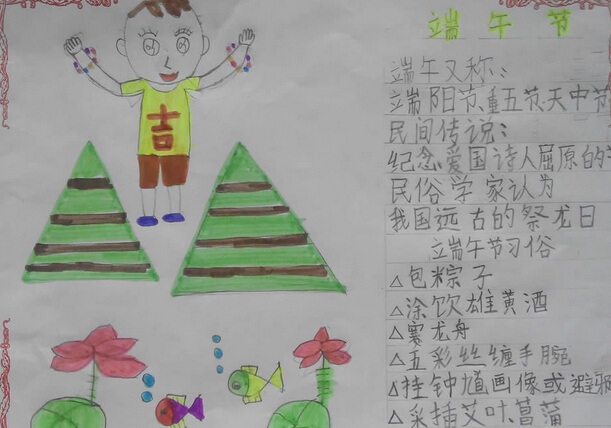 吉
端午节
端午又称：
端阳节、重五节、天中节
民间传说：
纪念爱国诗人屈原的
民俗学家认为
我国远古的祭龙日
端午节习俗
△包粽子
△涂饮雄黄酒
△赛龙舟
△五彩丝缠手腕
△挂钟馗画像或避邪
△采插艾叶、菖蒲